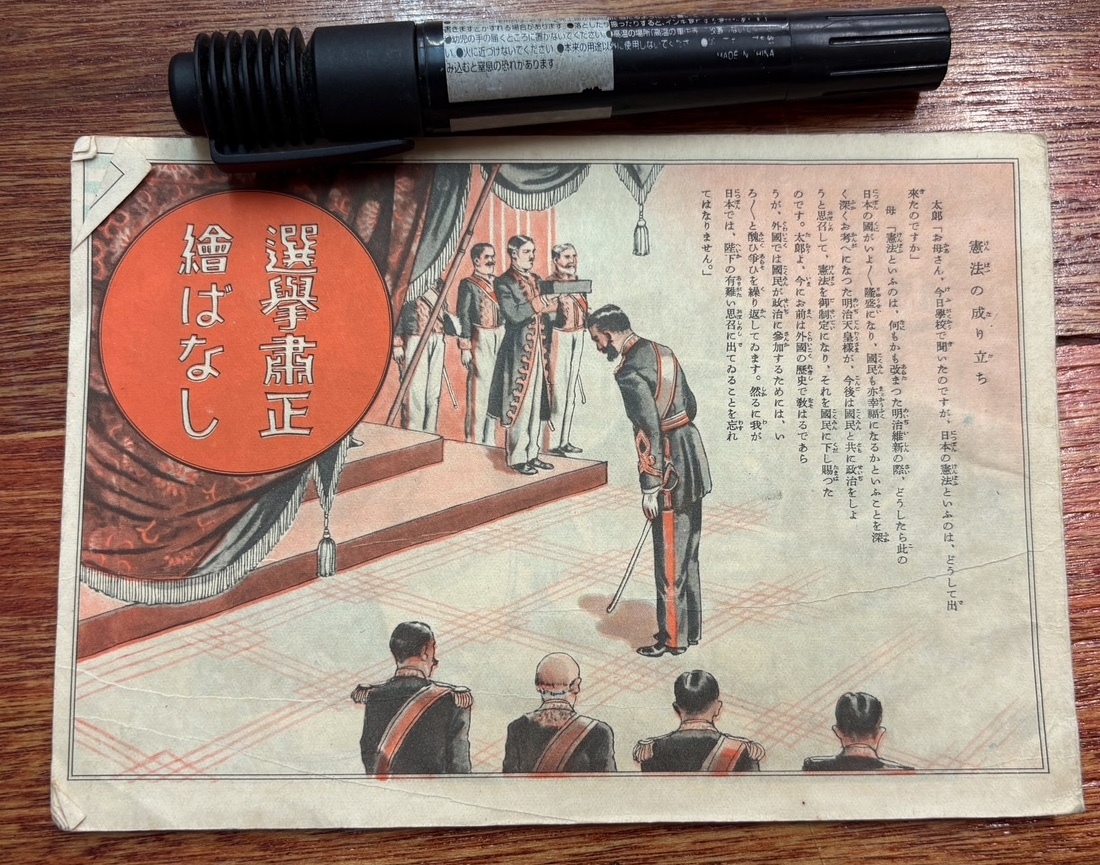 ●幼児の手の届くところに置かないでください。
●火に近づけないでください ●本来の用途以外に使用しないでください
み込むと窒息の恐れがあります。
MADE IN CHINA
選擧肅正
繪ばなし
憲法の成り立ち
太郎「お母さん、今日學校で聞いたのですが、日本の憲法といふのは、どうして出
來たのですか」
母 「憲法といふのは、何もかも改まつた明治維新の際、どうしたら此の
日本の國がいよ〱隆盛になり、國民も亦幸福になるかといふことを深
く深くお考へになつた明治天皇樣が、今後は國民と共に政治をしよ
うと思召して、憲法を御制定になり、それを國民に下し賜つた
のです。太郎よ、今にお前は外國の歷史で敎はるであら
うが、外國では國民が政治に參加するためには、い
ろ〱と醜ひ爭ひを繰り返してゐます。然るに我が
日本では、陛下の有難い思召に出てゐることを忘れ
てはなりません。」